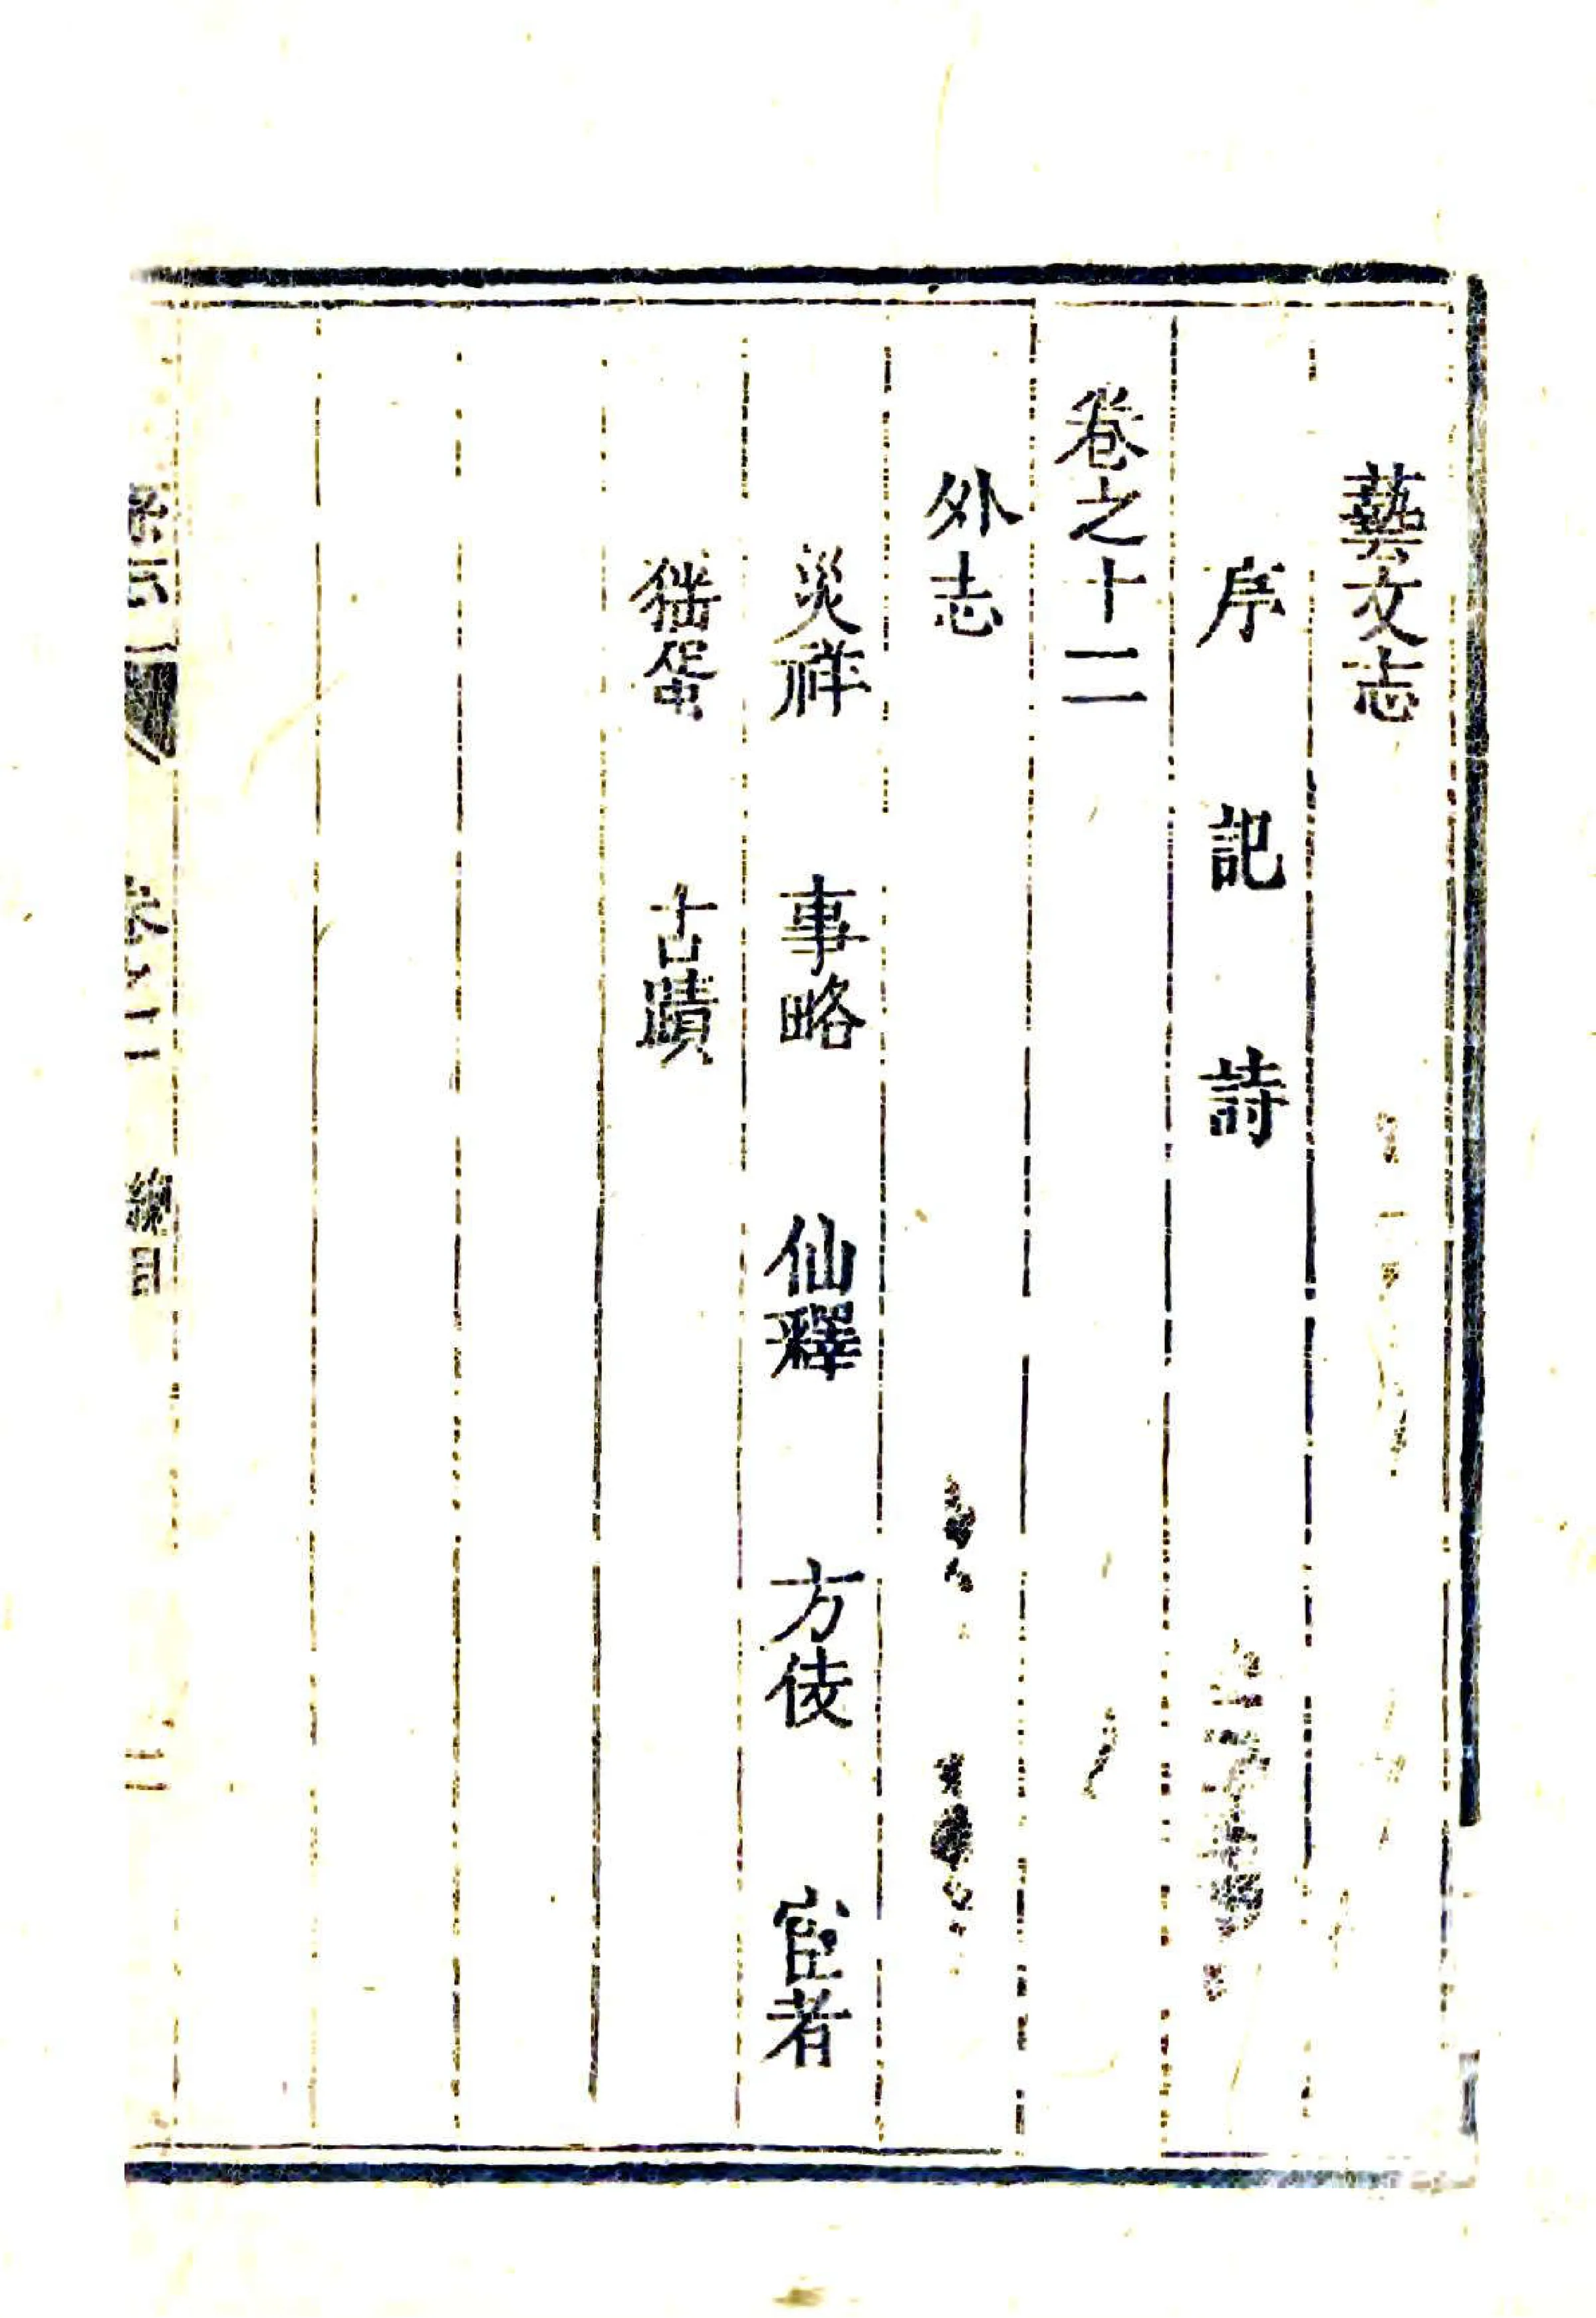 藝文志
序 記 詩
卷之十二
外志
災祥 事略 仙釋 方伎 宦者
猺蛋 古蹟
總目
二